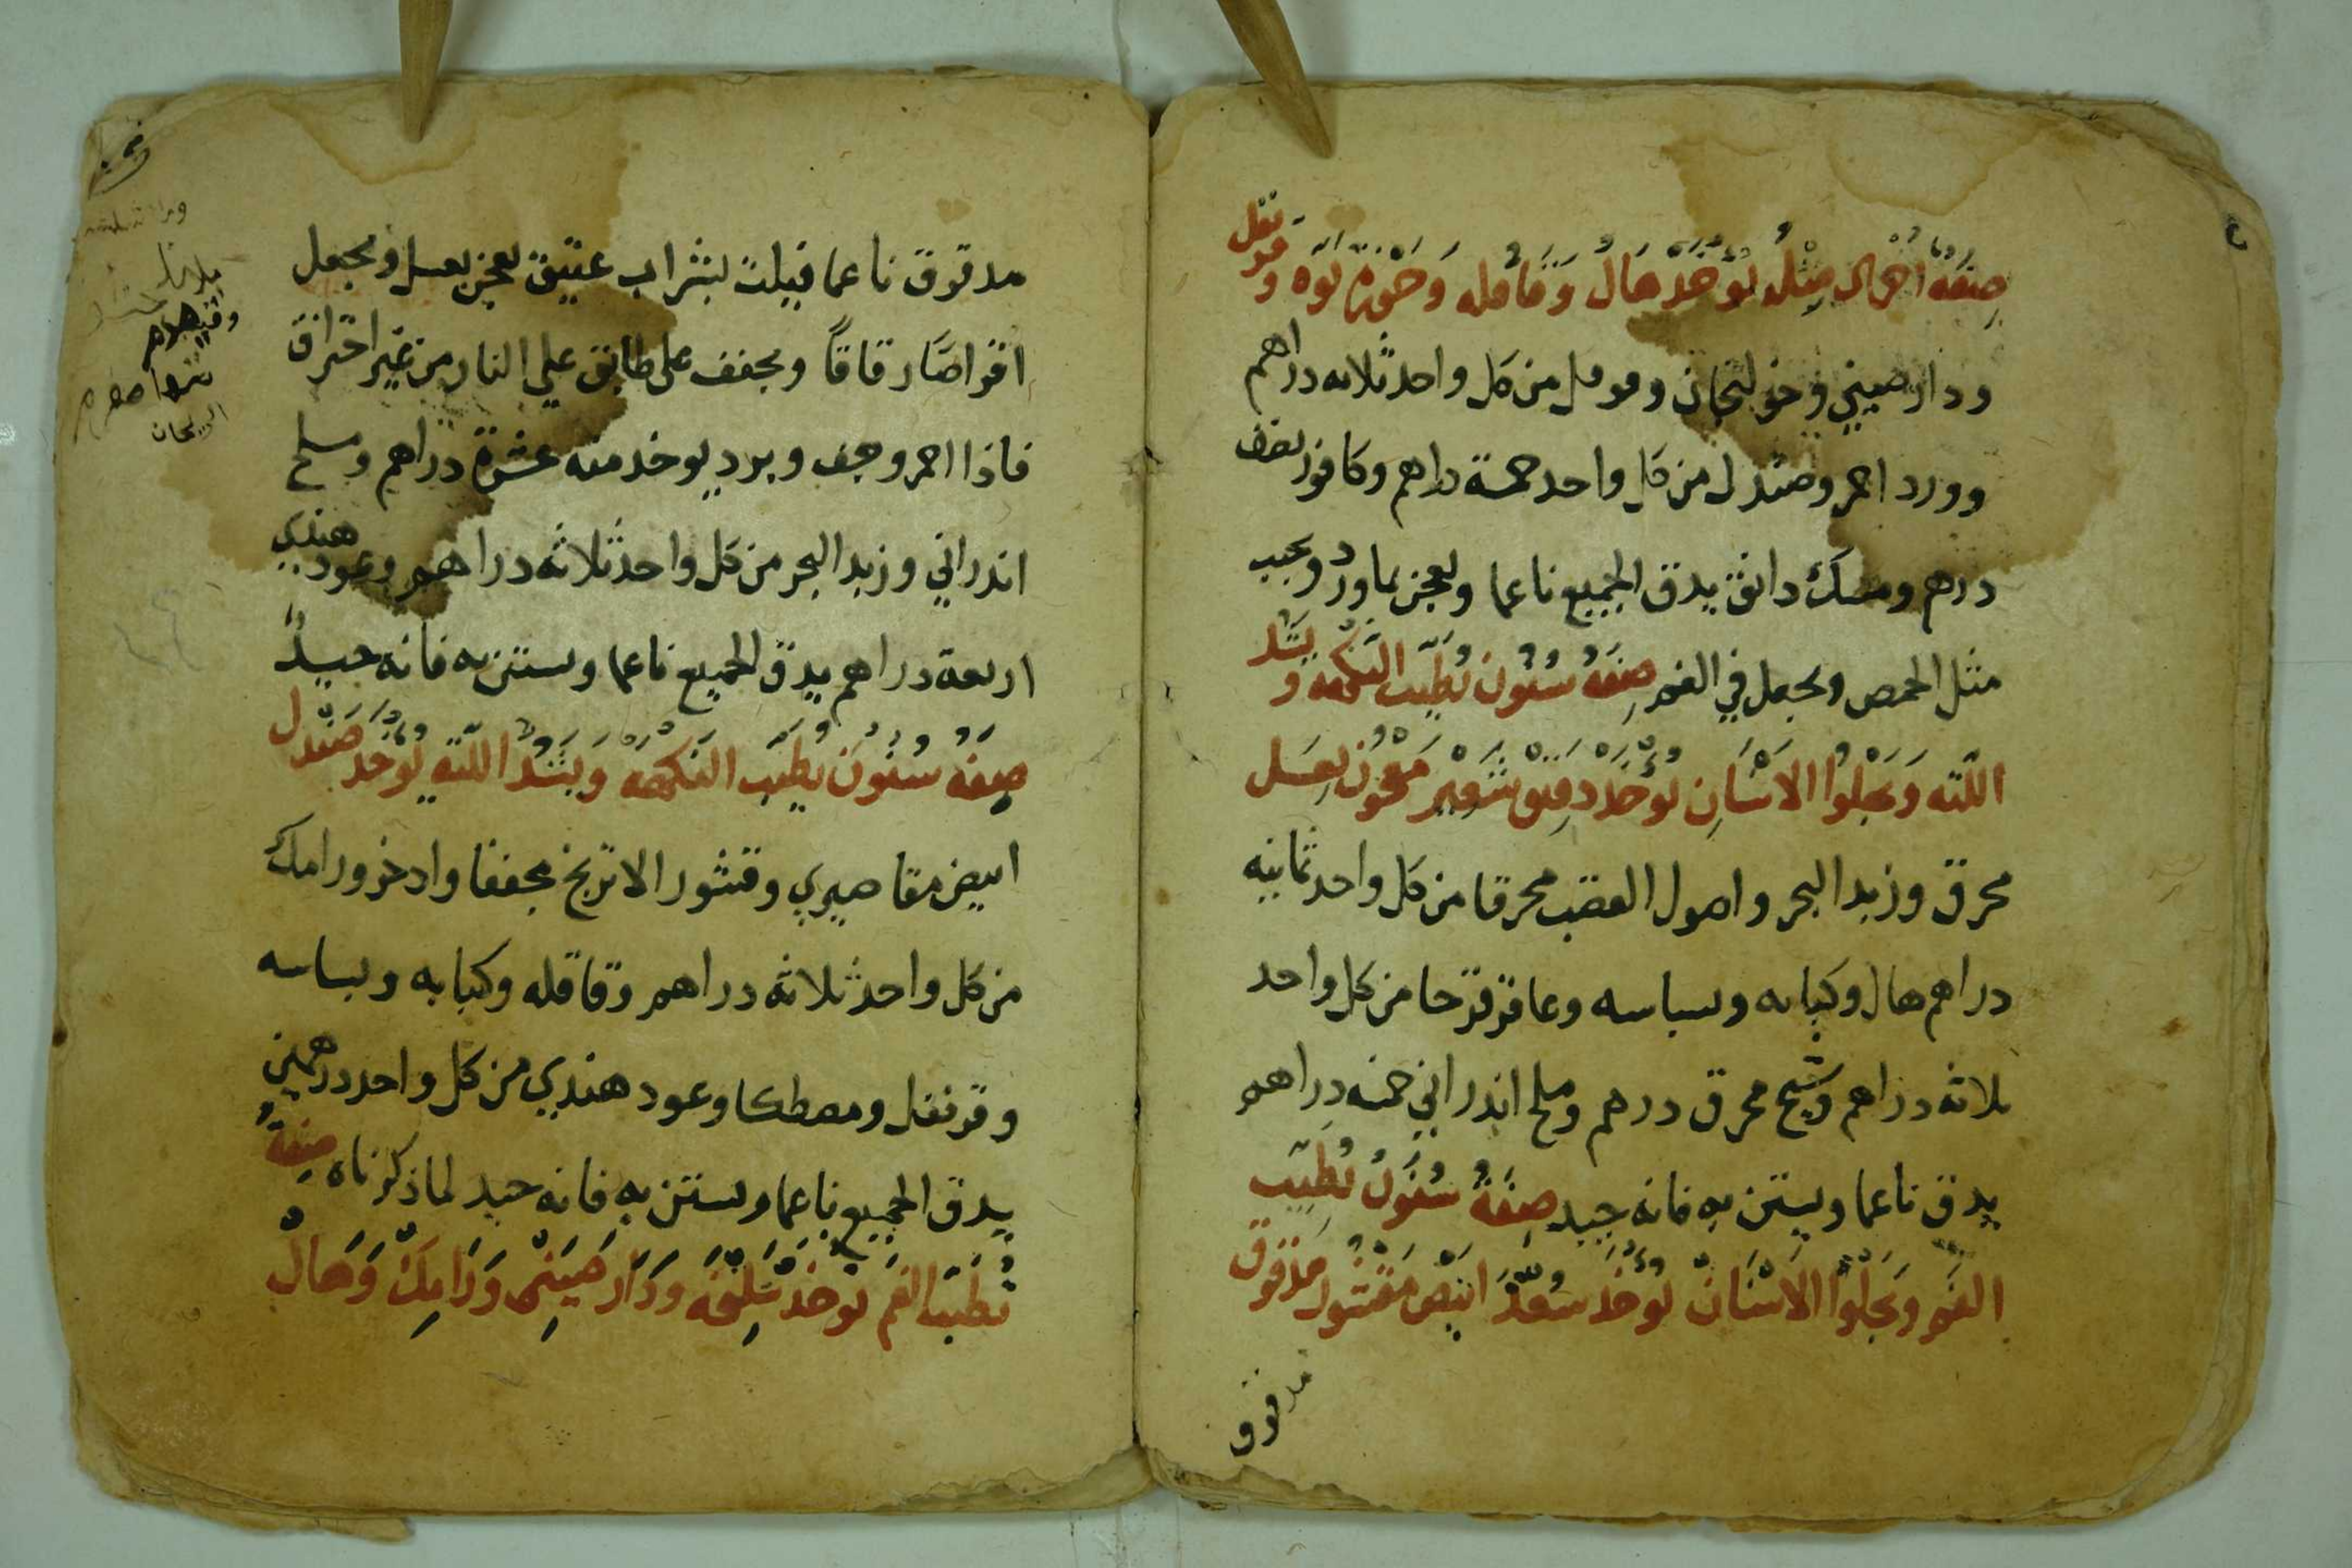 صِفَةُ اخْرى مِثلُه يُوْخَذُ هَالُ وَقَاقله وَجَوْزة بَوّه وَقرنفل
ودارصيني وخولنجان وفوفل من كل واحد ثلاثه دراهم
وورد احمر وصندل من كل واحد خمسة دراهم وكافور نصف
درهم ومسك دانق يدق الجميع ناعما ويعجن بماورد ويحبب
مثل الحمص ويجعل في الفم صِفَةُ سُنُون تُطَيّب النَكْهه وَيشد
اللّثه وَيَجْلُوا الاسْنَانِ يُوْخَذ دَقِيْق شَعِيْر مَعْجُون بِعسَل
محرق وزبد البحر واصول القصب محرقا من كل واحد ثمانيه
دراهم هال وكبابه وبسباسه وعاقرقرحا من كل واحد
ثلاثه دراهم وشيح محرق درهم وملح اندراني خمسه دراهم
يدق ناعما ويستن به فانه جيد صِفَةُ سُنُونُ تُطِيّب
الفَم وَيَجْلُوا الاسْنَانْ يُوْخَذ سُعدّ ابيَض مَقْشُور مَدقوق
مدقوق
مدقوق ناعما فيلت بشراب عتيق يعجن بعسل ويجعل
اقراصًا رقاقاً ويجفف على طابق علي النار من غير احتراق
فاذا احمر وجف وبرد يوخد منه عشرة دراهم وملح
اندراني وزبد البحر من كل واحد ثلاثه دراهم وعود هندي
اربعة دراهم يدق الجميع ناعما ويستن به فانه جيدٌ
صِفَةُ سُنُونَ يُطَيّب النَكْهَه وَيَشُدُّ اللثَه يُوْخَذ صَنْدل
ابيض مقاصيري وقشور الاترنج مجففا واذخر ورامك
من كل واحد ثلاثة دراهم وقاقله وكبابه وبسباسه
وقرنفل ومصطكا وعود هندي من كل واحد درهمين
يدق الجميع ناعما ويستن به فانه جيد لما ذكرناه صِفَةُ
تُطَيّب الفَم تُوْخَذ سَلِيْخَه وَدَار صِيَنِي وَرَامِكْ وَهَالْ
الريحان